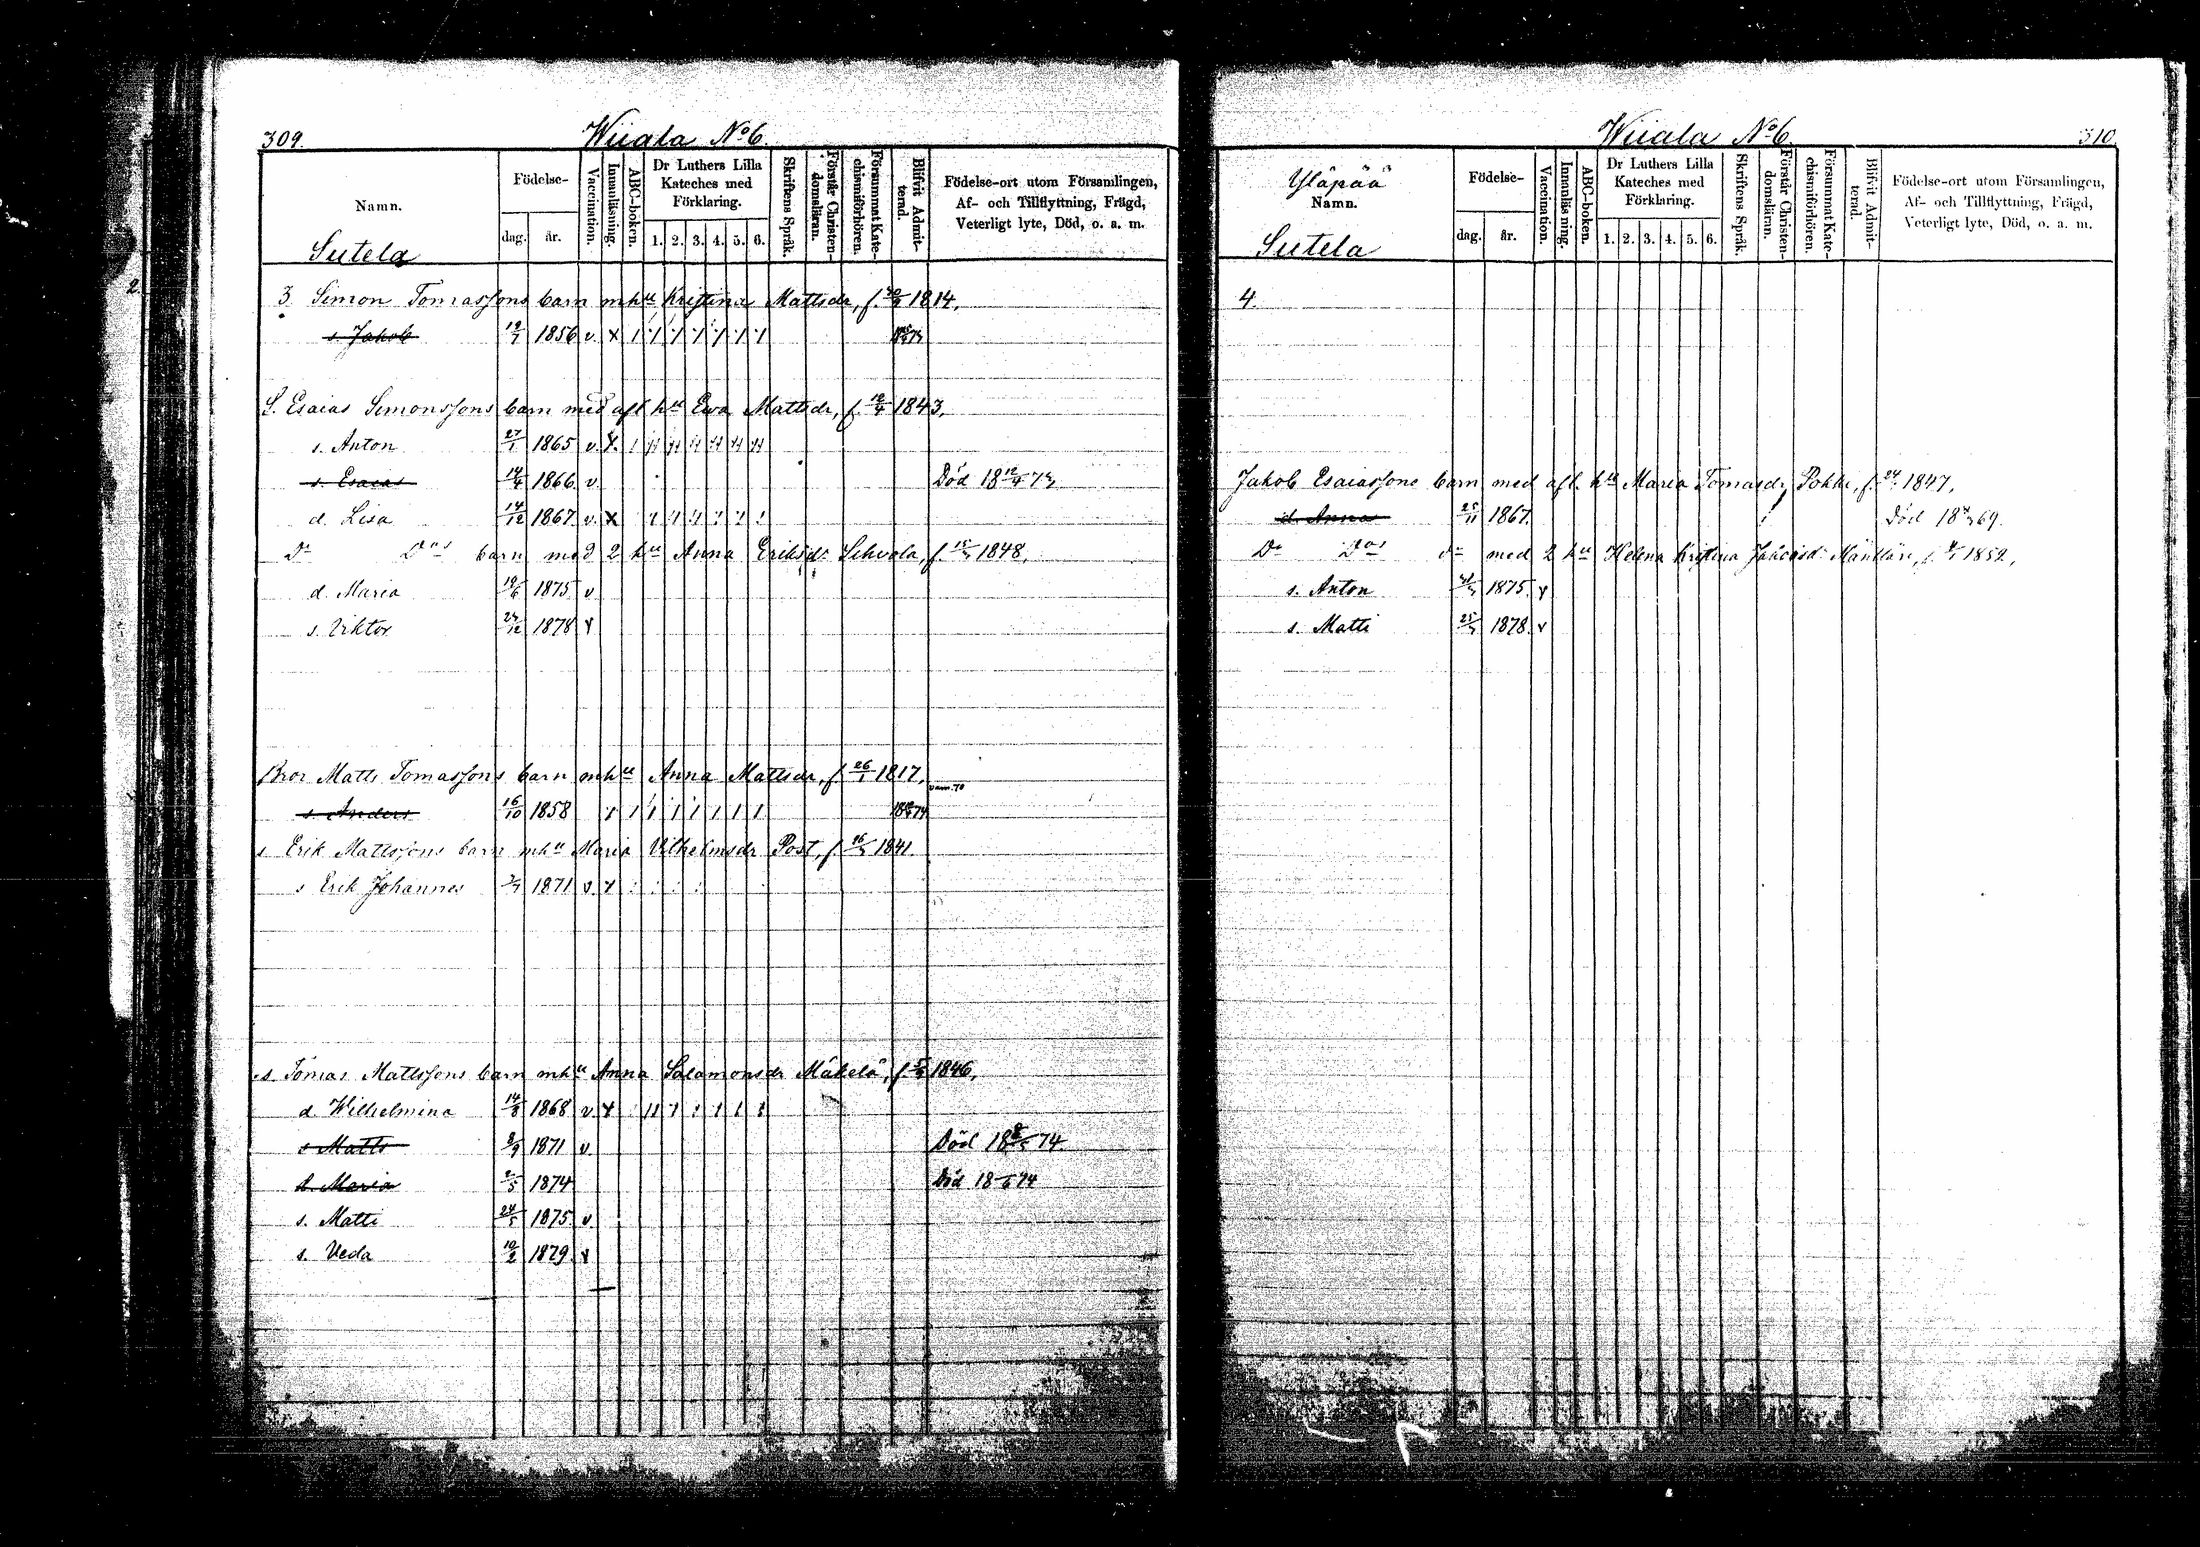 309. Wiiala No 6.
Namn. Födelse- dag. år. Vaccination. Innanläsning. ABC-boken. Dr Luthers Lilla Kateches med Förklaring. 1. 2. 3. 4. 5. 6. Skriftens Språk. Förstår Christendomsläran. Försummat Katechismiförhören. Blifvit Admitterad. Födelse-ort utom Församlingen, Af- och Tillflyttning, Frägd, Veterligt lyte, Död, o. a. m.
Sutela
3. Simon Tomassons barn m hu Kristina Mattsdr, f. 1814.
s. Jakob 1856 v. X
S. Esaias Simonssons barn med afl hu Ewa Mattsdr, f. 1843.
s. Anton 27/1 1865 v. X.
s. Esaias 14/4 1866. v. Död 18 12/4 73
d. Lisa 14/12 1867. v. X
Do Dos barn med 2 hu Anna Eriksdr Sihvola, f. 1848.
d. Maria 19/6 1875 v
s. Viktor 1878 v
Bror Matts Tomassons barn m hu Anna Mattsdr, f 26/1 1817.
s. Anders 16/10 1858
s Erik Mattssons barn m hu Maria Vilhelmsdr Post, f 1841.
s Erik Johannes 1871 v. x
s. Tomas Mattssons barn m hu Anna Salamonsdr Mäkelä, f. 1846,
d. Wilhelmina 14/8 1868 v. x
s Matts 1871 v. Död 74.
d. Maria 1874 Död 74
s. Matti 24/5 1875 v
s. Veda 10/2 1879. v
Wiiala No 6. 310.
Yläpää
Namn. Födelse- dag. år. Vaccination. Innanläsning. ABC-boken. Dr Luthers Lilla Kateches med Förklaring. 1. 2. 3. 4. 5. 6. Skriftens Språk. Förstår Christendomsläran. Försummat Katechismiförhören. Blifvit Admitterad. Födelse-ort utom Församlingen, Af- och Tillflyttning, Frägd, Veterligt lyte, Död, o. a. m.
Sutela
4.
Jakob Esaiassons barn med afl. hu Maria Tomasdr, Pokki, f. 1847,
d. Anna 25/11 1867. Död 69.
Do Dos do med 2 hu Helena Kristina f. 1852,
s. Anton 1875. v
s. Matti 1878. v